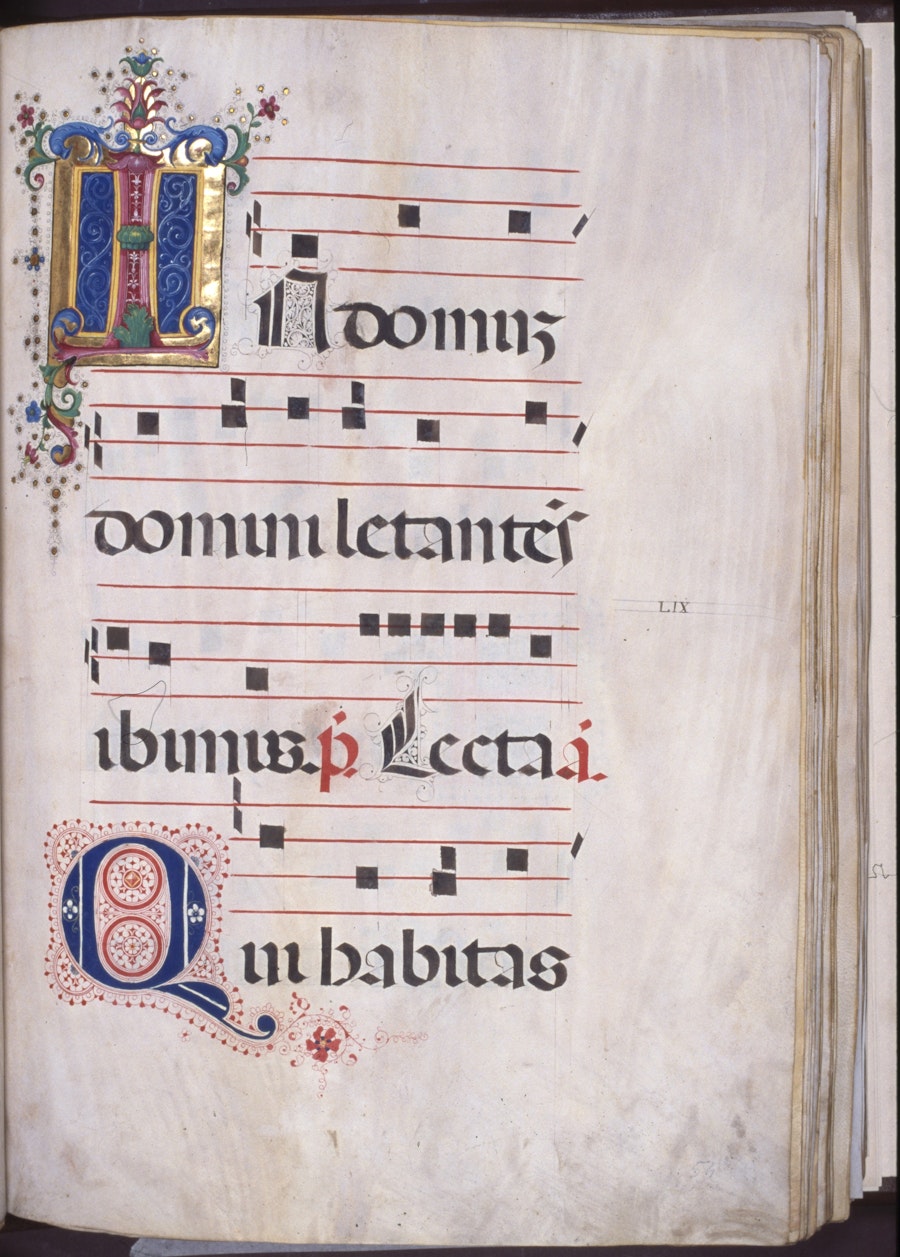 IN domuz
domini letantes
ibimus. p̄. Lecta á.
LIX
Qui habitas